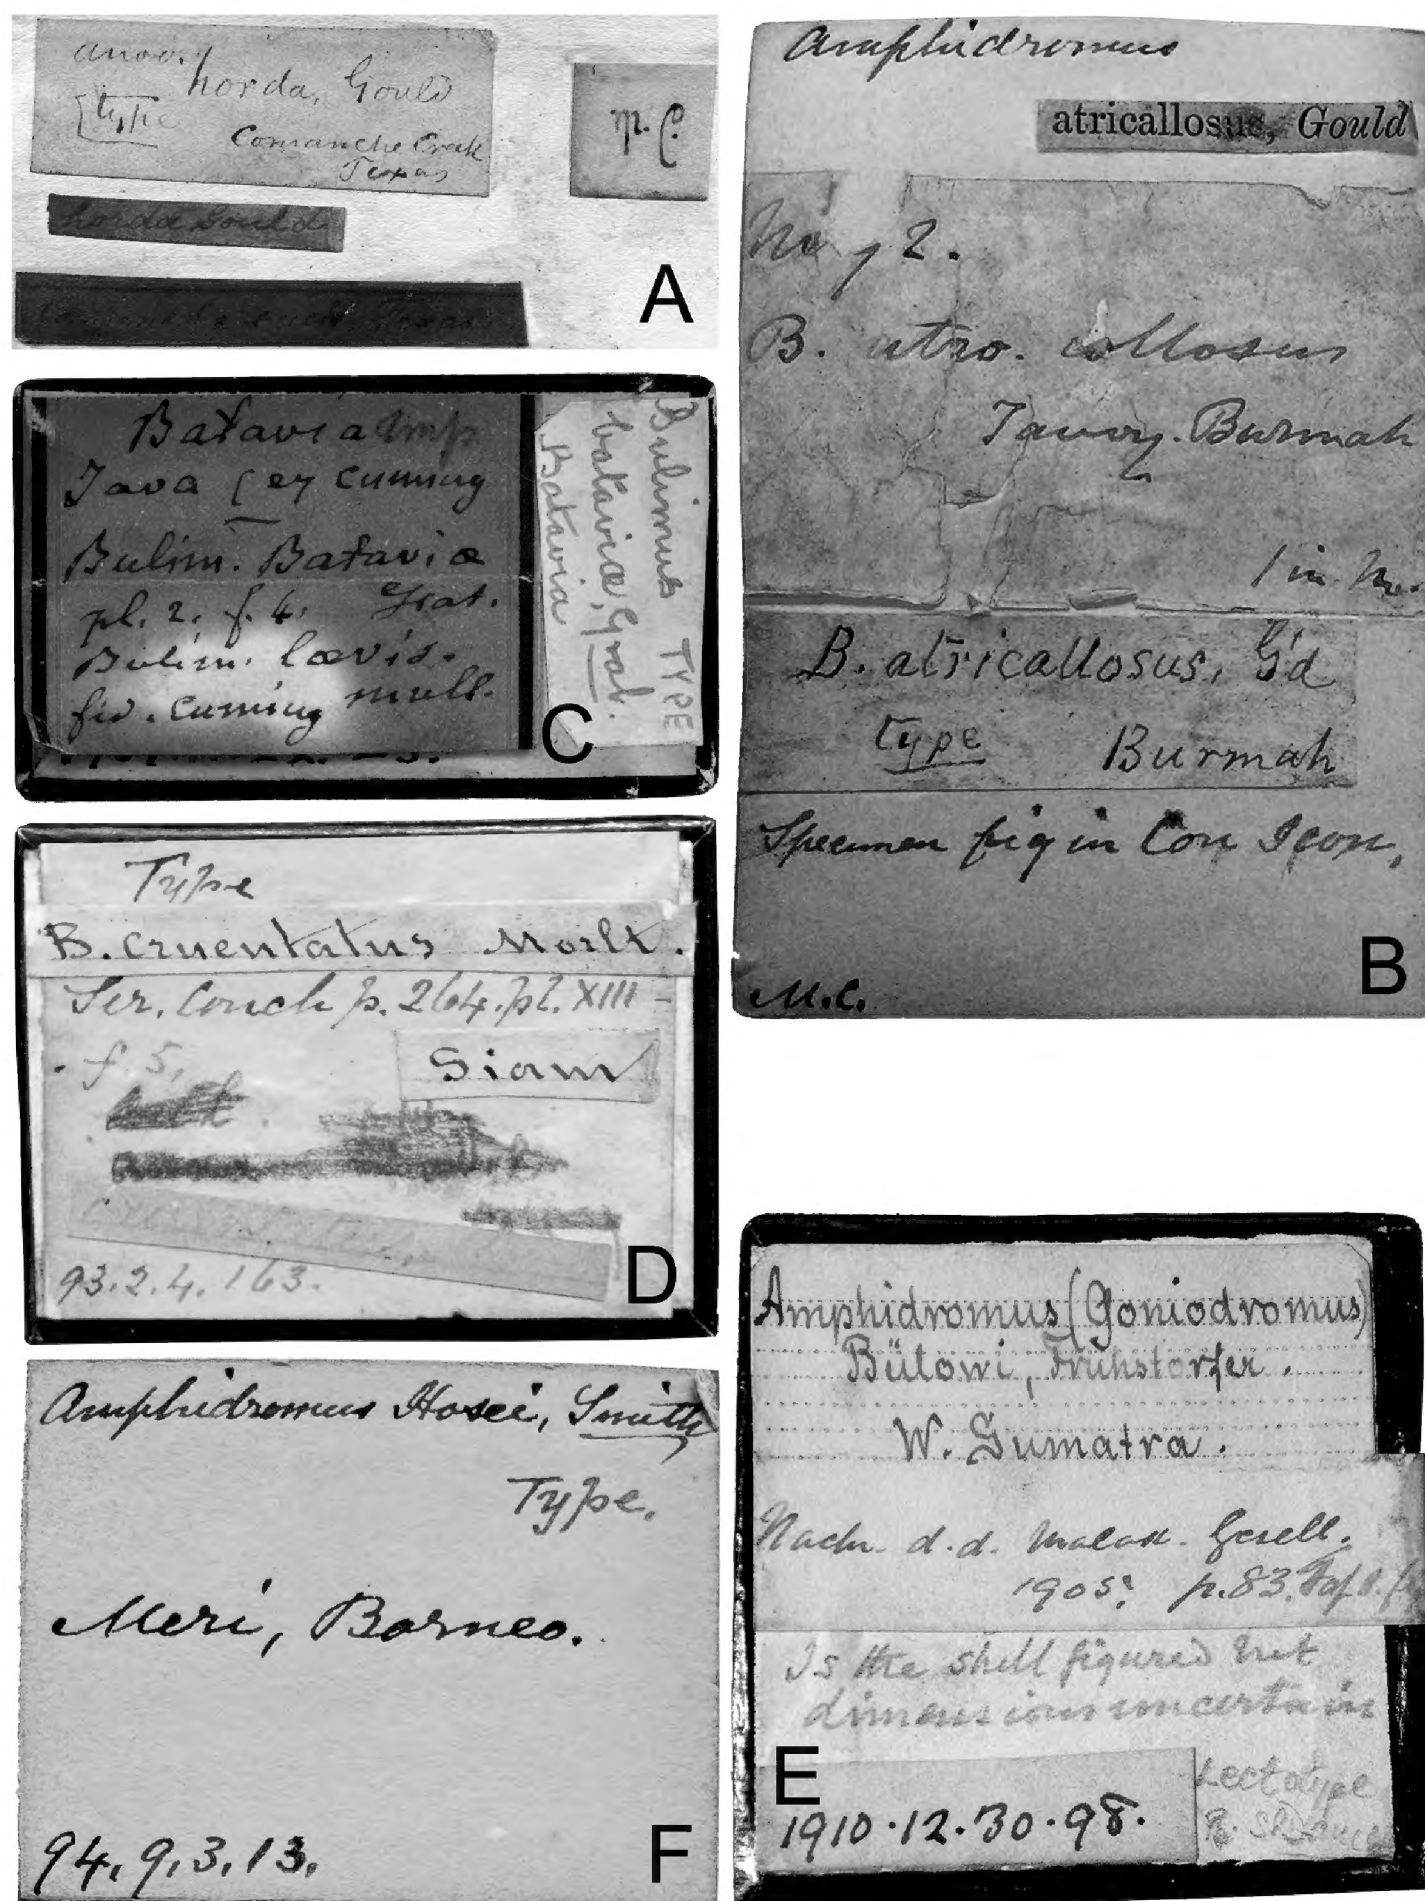 horda, Gould
type
Comanche Creek
Texas
M.C.
horda Gould
A
Amphidromus
atricallosus, Gould
No, 2.
B. atro. callosus
Tavoy. Burmah
1 in No.
B. atricallosus, G'd
type Burmah
Specimen fig in Con Icon,
M.C.
B
Batavia Imp
Java
Cuming
Bulim. Bataviæ
pl. 2. f. 4. Grat.
Bulim. lævis.
fid. Cuming mull.
Bulimus
bataviæ, Grat.
Batavia
TYPE
C
Type
B. cruentatus Morlt.
Ser. Conch p. 264. pl. XIII -
- f. 5,
Siam
93.2.4.163.
D
Amphidromus (Goniodromus)
Bülowi, Fruhstorfer.
W. Sumatra.
Nachr. d. d. Malak. Gesell.
1905. p. 83. Taf.
Is the shell figured but
dimensions uncertain
Lectotype
1910.12.30.98.
E
Amphidromus Hosei, Smith
Type.
Meri, Borneo.
94.9.3.13.
F